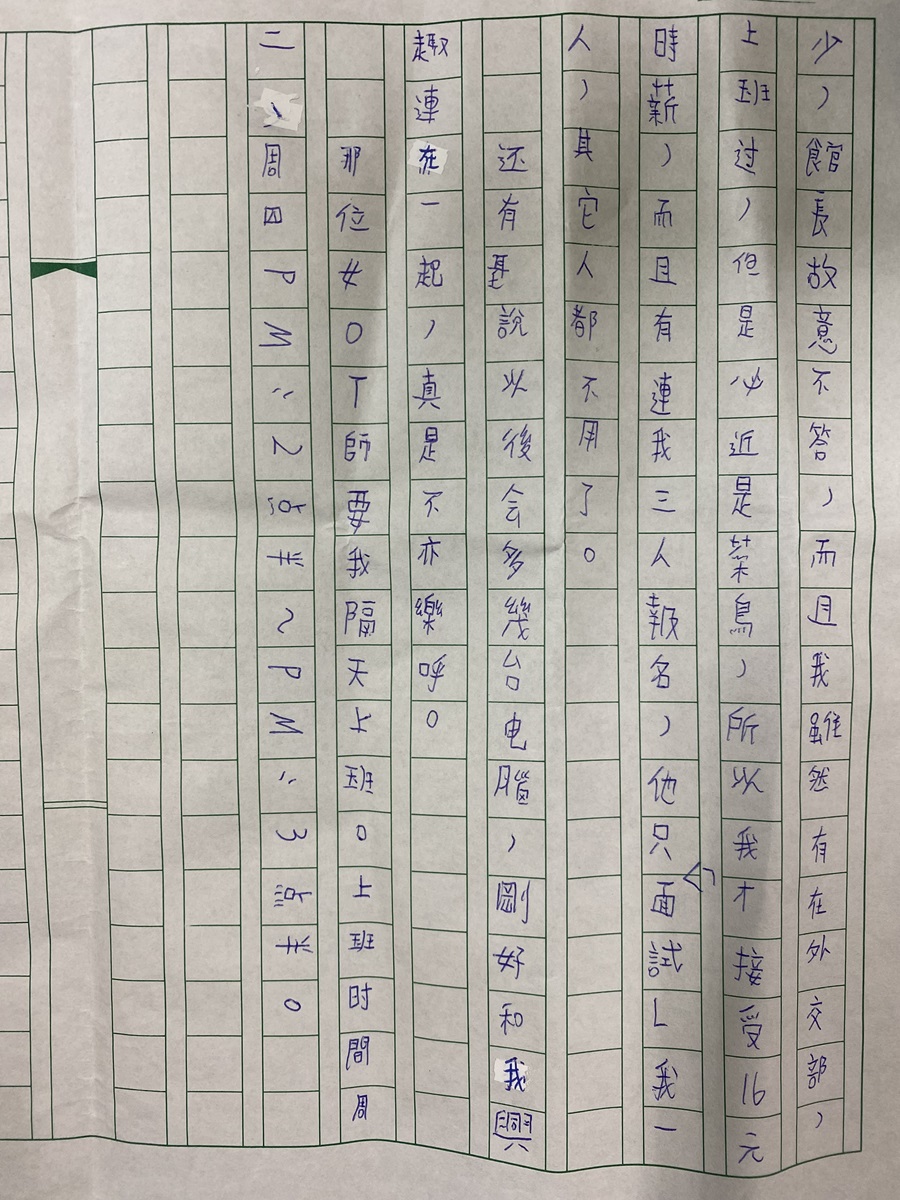 少，館長故意不答，而且我雖然有在外交部，
上班过，但是必近是菜鳥，所以我才接受16元
時薪，而且有連我三人報名，他只面試L我一
人，其它人都不用了。
还有說以後会多幾台电腦，剛好和我興
趣連在一起，真是不亦樂呼。
那位女O丁師要我隔天上班。上班时間周
二、周四PM:2点半~PM:3点半。